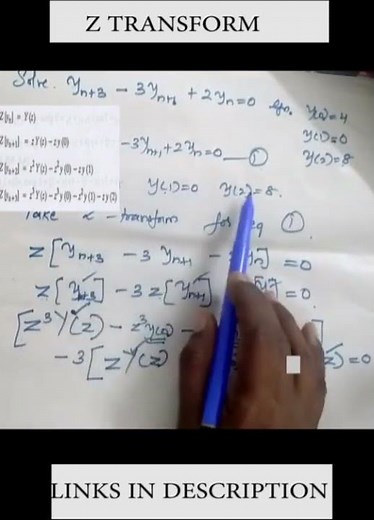 Z TRANSFORM
Solve. y_{n+3} - 3y_{n+1} + 2y_n = 0 y(0)=4
y(1)=0
y(2)=8
Z[y_n] = Y(z)
Z[y_{n+1}] = zY(z) - zy(0)
Z[y_{n+2}] = z²Y(z) - z²y(0) - zy(1)
Z[y_{n+3}] = z³Y(z) - z³y(0) - z²y(1) - zy(2)
-3y_{n+1} + 2y_n = 0 — ①
y(1)=0 y(2)=8.
Take z - transform for eq ①.
z[y_{n+3} - 3 y_{n+1} - y_n] = 0
z[y_{n+3}] - 3 z[y_{n+1}] = 0.
[z³Y(z) - z³y(0) - ]
-3[zY(z) z) = 0
LINKS IN DESCRIPTION